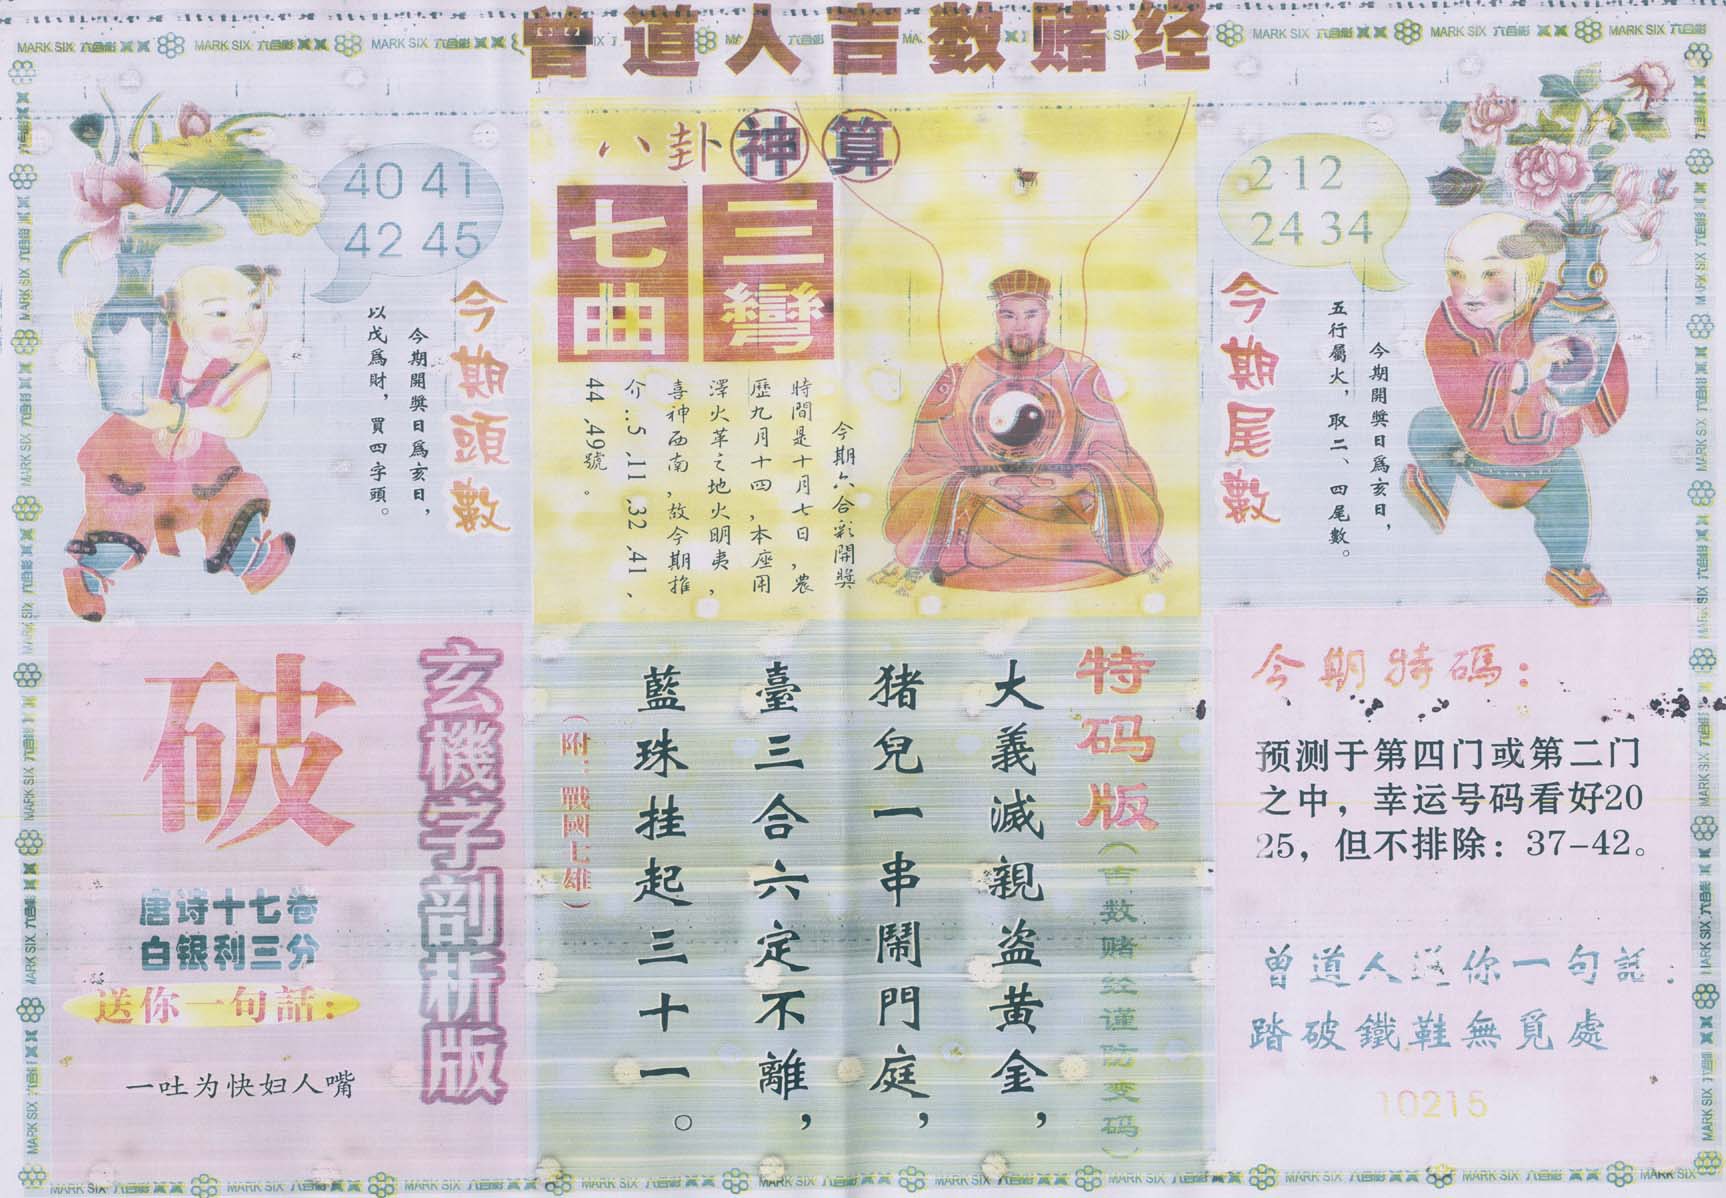 曾道人吉数赌经
MARK SIX 六合彩
40 41
42 45
今期頭數
今期開獎日爲亥日，
以戊爲財，買四字頭。
八卦神算
三彎
七曲
今期六合彩開獎
時間是十月七日,農
歷九月十四,本座用
澤火革之地火明夷,
喜神西南,故今期推
介...5、11、32、41、
44、49號。
2 12
24 34
今期尾數
今期開獎日爲亥日，
五行屬火，取二、四尾數。
玄機字剖析版
破
唐诗十七卷
白银利三分
送你一句話：
一吐为快妇人嘴
特码版（吉数赌经谨防变码）
大義滅親盗黄金，
猪兒一串鬧門庭，
臺三合六定不離，
藍珠挂起三十一。
（附：戰國七雄）
今期特碼：
预测于第四门或第二门
之中，幸运号码看好20
25，但不排除：37-42。
曾道人送你一句話：
踏破鐵鞋無覓處
10215